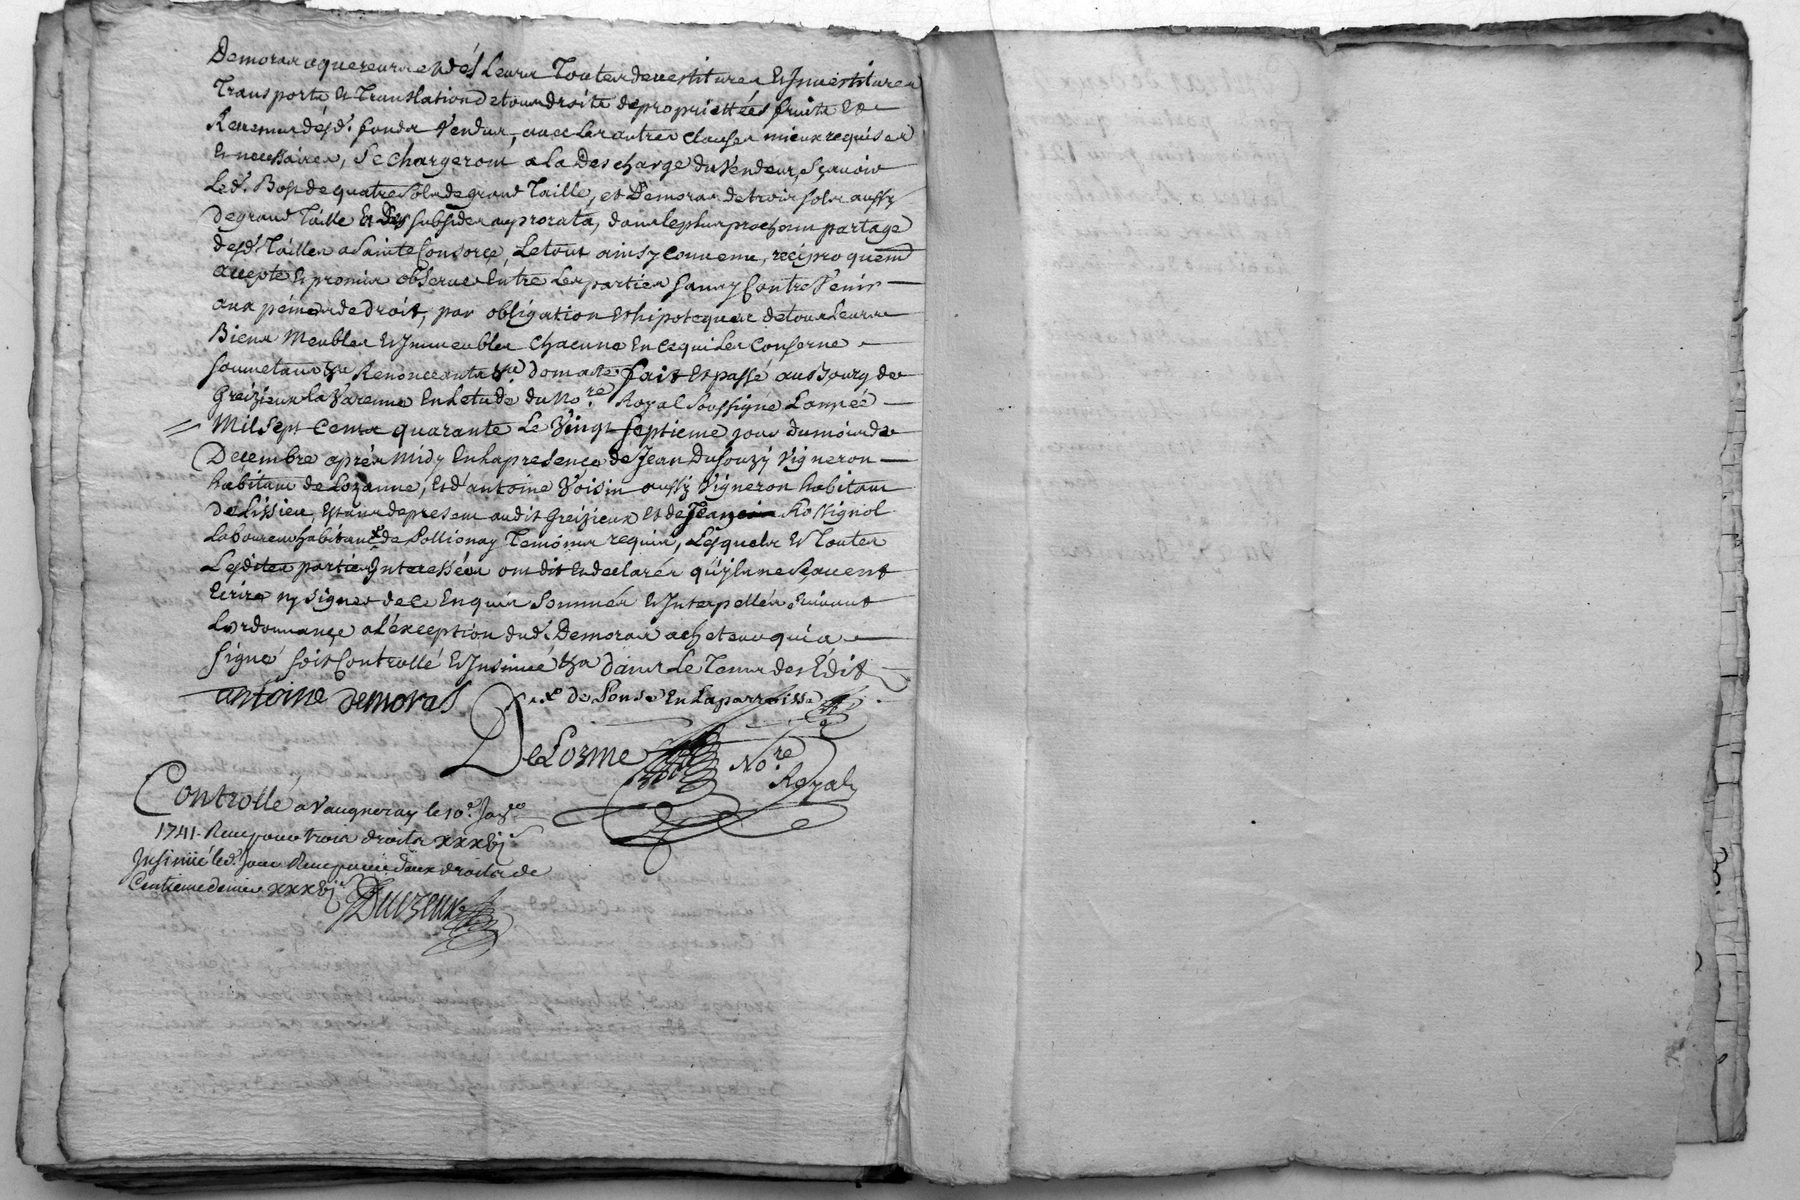 Demoras aquereurs et dés Leurs Toutes devestitures et Investitures
Transports et Translation de tous droits de propriettées fruits et
Revenus desd. fonds Vendus, avec les autres clauses mieux requises
et necessaires, se chargeront a la Descharge du Vendeur, Sçavoir
Led. Bost de quatre sols de grand Taille, et Demoras de trois sols aussy
de grand Taille et Des subsides au prorata, dans le plus prochain partage
desd. Tailles a Sainte Consorce, Le tout ainsy convenu, réciproquemt
accepté et promis observer Entre Les parties sans y Contrevenir
aux peines de droit, par obligation et hipoteque de tous Leurs
Biens Meubles et Immeubles chacune En ce qui Les Conserne
soumetant &ra Renonceants &ra domate fait et passé au Bourg de
Greizieux la Varenne En Letude du No.re Royal Soussigné L'année
Mil Sept Cents quarante Le Vingt septieme jour du mois de
Decembre après Midy En la presence de Jean Dusouzy Vigneron
habitant de Lozanne, et d'antoine Voisin aussy Vigneron habitant
de Lissieu, Estant de present audit Greizieux et de Jean Rossignol
Laboureur habitant de Pollionay Temoins requis, Lesquels et Toutes
Lesdites parties Interessées ont dit et declarés qu'ils ne sçavent
Ecrire ny Signer de ce Enquis Sommés et Interpellés suivant
Lordonnance a L'exception dud. Demoras acheteur qui a
signé soit Controllé et Insinué &ra dans Le Tems des Edit
antoine demoras
de Ponse En La parroisse
DeLorme No.re
Royal
Controllé a Vaugneray le 10e. Janer
1741. Reçu pour trois droits xxxvj s
Insinüé led. jour Reçu pour deux droits de
Centieme denier xxxvj s